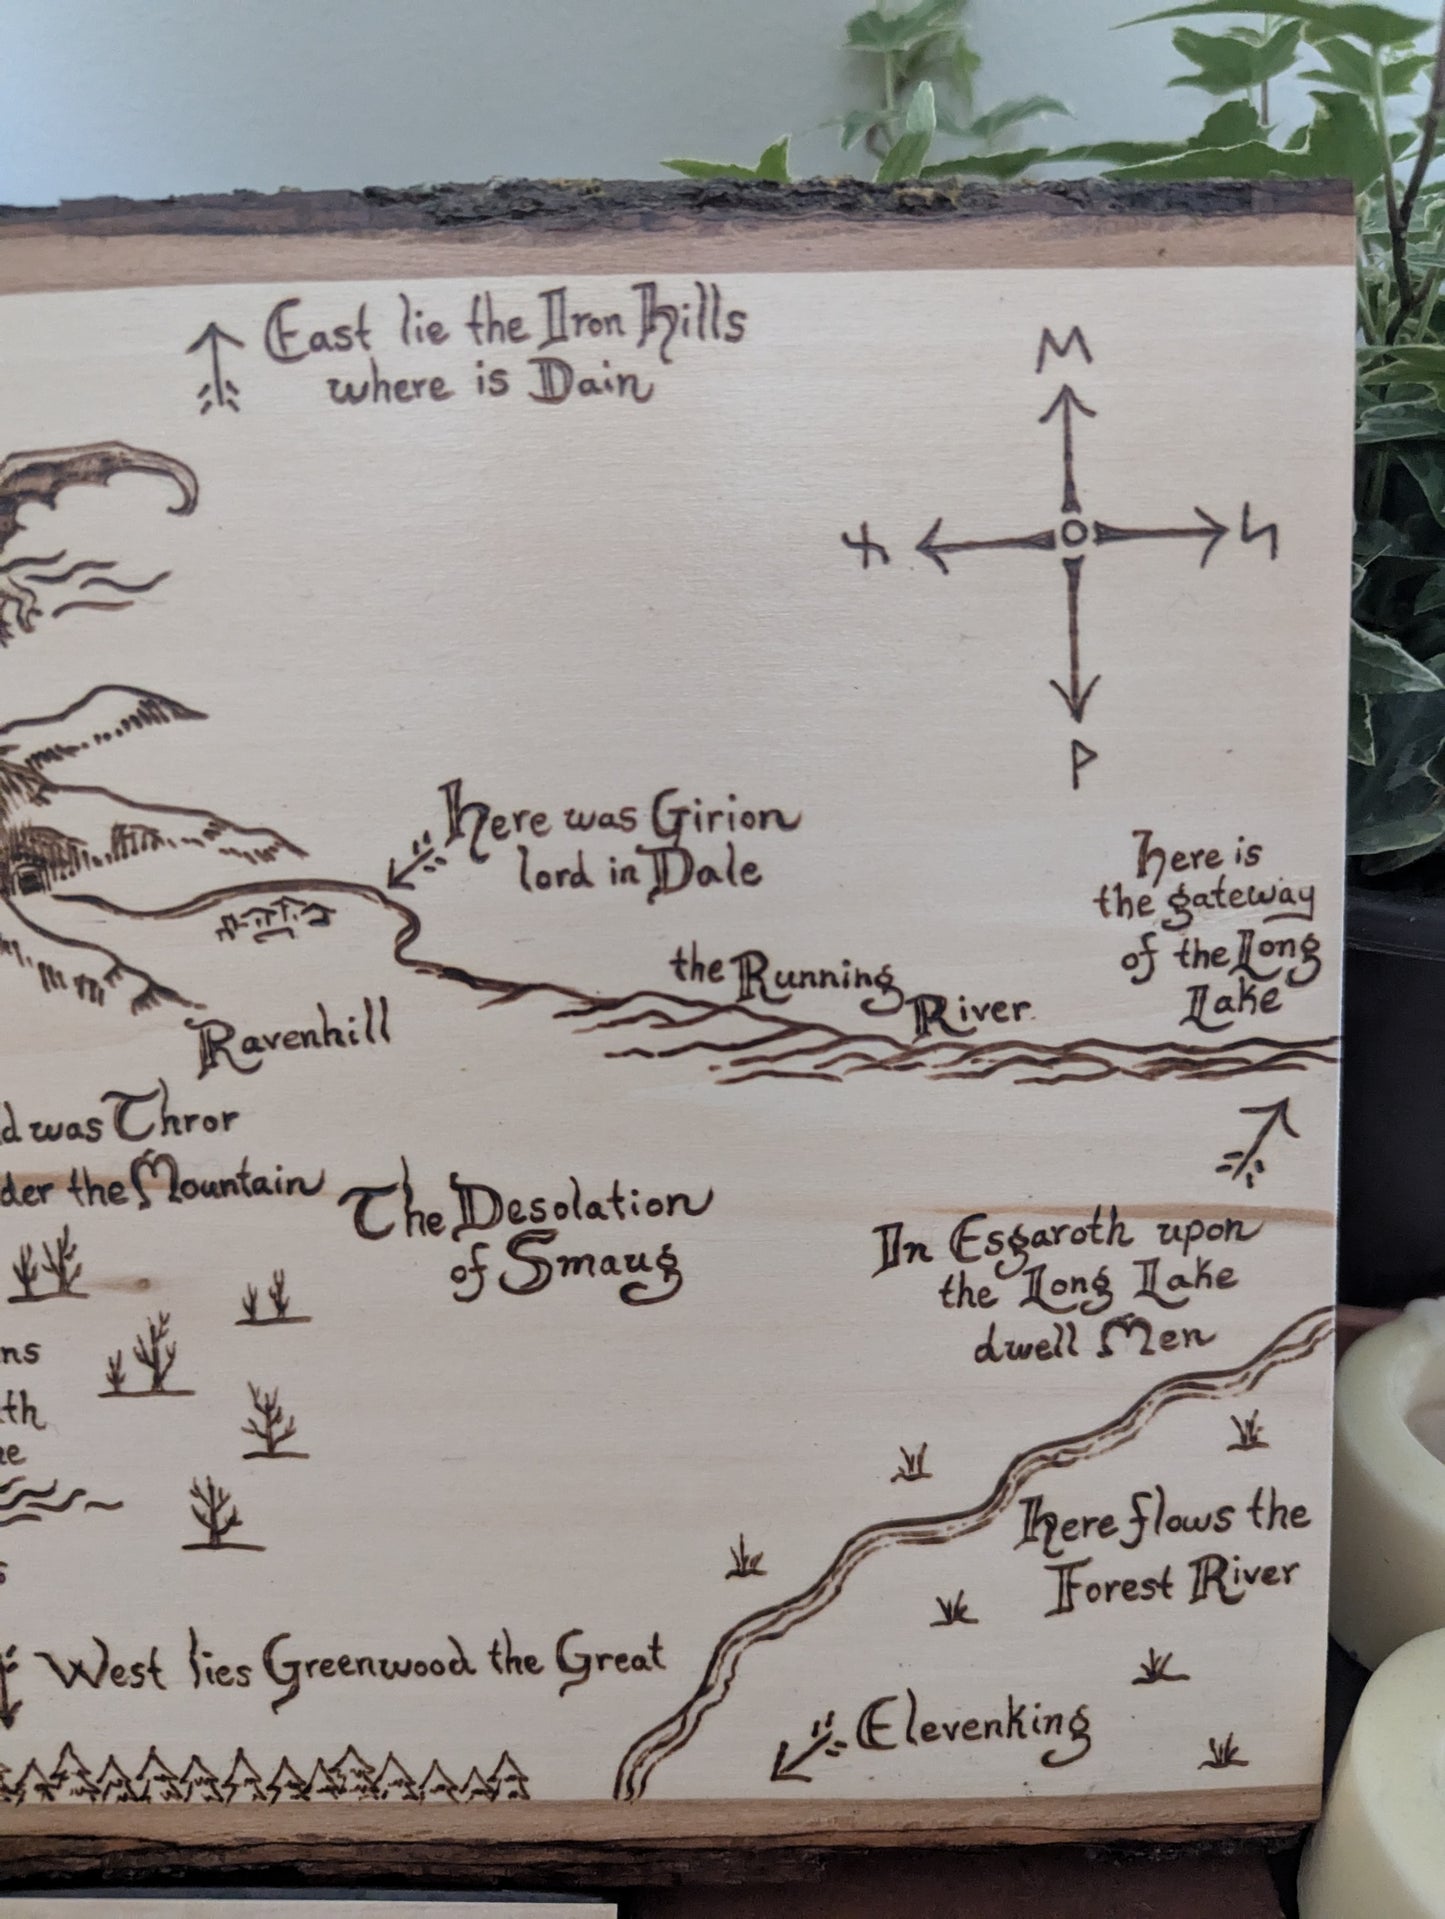 East lie the Iron Hills
where is Dain
ᛖ
ᚾ
ᛋ
ᚹ
Here was Girion
lord in Dale
Here is
the gateway
of the Long
Lake
the Running
River
Ravenhill
d was Thror
der the Mountain
The Desolation
of Smaug
In Esgaroth upon
the Long Lake
dwell Men
ns
th
Here flows the
Forest River
West lies Greenwood the Great
Elevenking